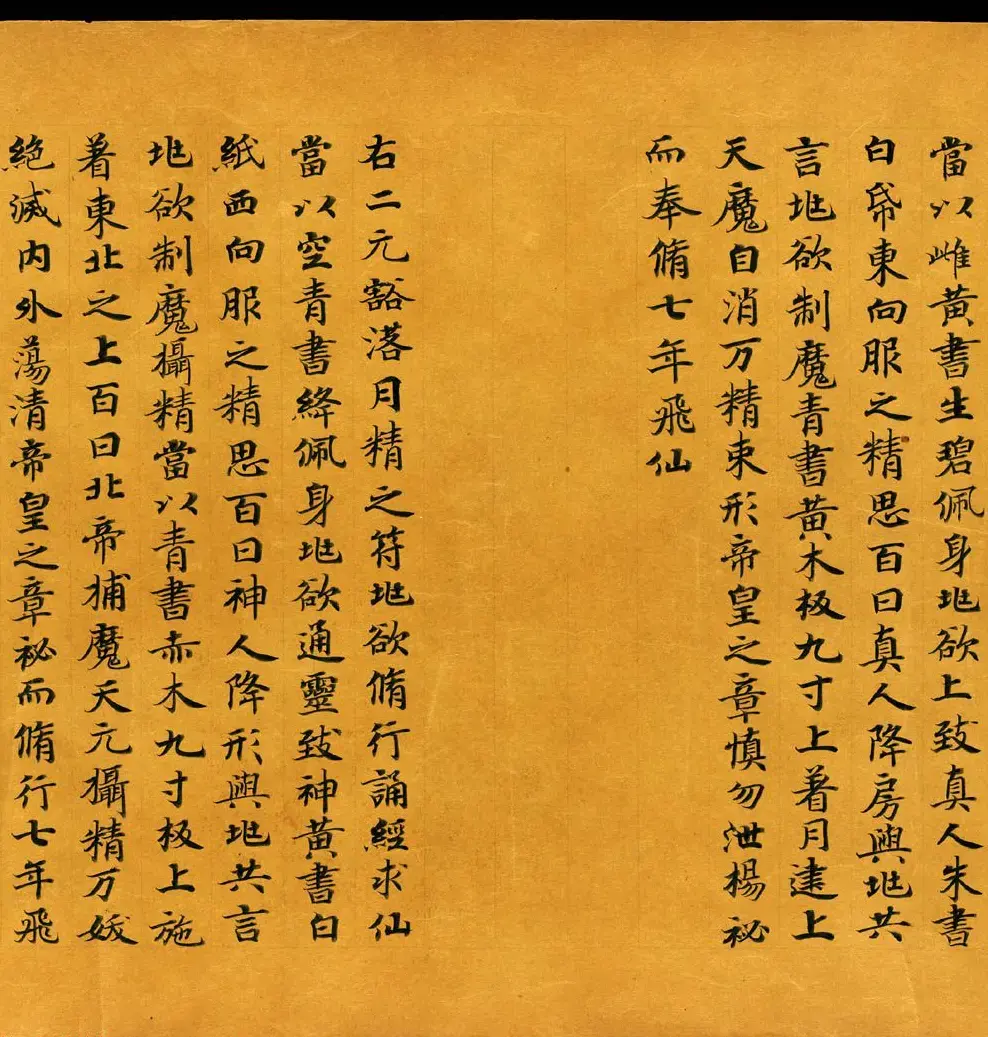 當以雌黃書生碧佩身地欲上致真人朱書
白帋東向服之精思百日真人降房與地共
言地欲制魔青書黃木板九寸上著月建上
天魔自消万精束形帝皇之章慎勿泄楊祕
而奉脩七年飛仙
右二元豁落月精之符地欲脩行誦經求仙
當以空青書絳佩身地欲通靈致神黃書白
紙西向服之精思百日神人降形與地共言
地欲制魔攝精當以青書赤木九寸板上施
著東北之上百日北帝捕魔天元攝精万妖
絕滅內外蕩清帝皇之章祕而脩行七年飛